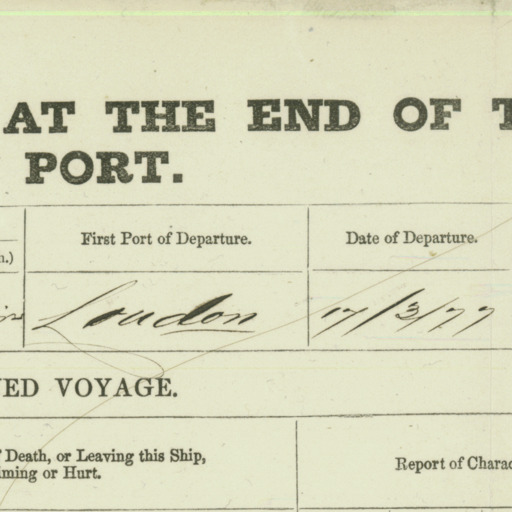 AT THE END OF T
PORT.
n.) First Port of Departure. Date of Departure.
London 17/3/77
ED VOYAGE.
Death, or Leaving this Ship,
ming or Hurt. Report of Charac